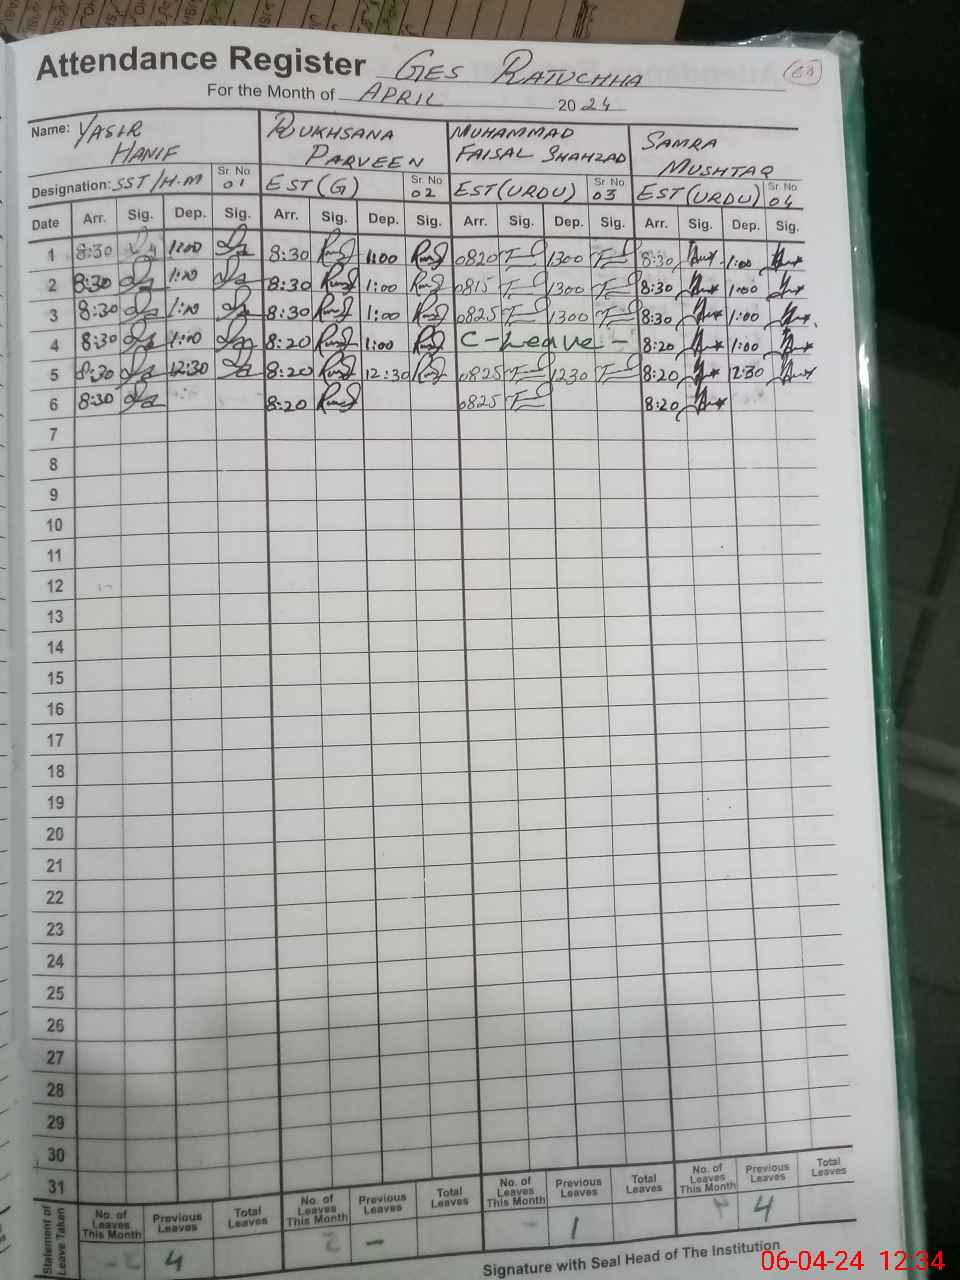 Attendance Register GES RATUCHHA
For the Month of APRIL 2024
Name: YASIR HANIF RUKHSANA PARVEEN MUHAMMAD FAISAL SHAHZAD SAMRA MUSHTAQ
Designation: SST/H.M Sr. No 01 EST(G) Sr. No 02 EST(URDU) Sr. No 03 EST(URDU) Sr. No 04
Date Arr. Sig. Dep. Sig. Arr. Sig. Dep. Sig. Arr. Sig. Dep. Sig. Arr. Sig. Dep. Sig.
1 8:30 1:00 8:30 1:00 0820 1300 8:30 1:00
2 8:30 1:00 8:30 1:00 0815 1300 8:30 1:00
3 8:30 1:00 8:30 1:00 0825 1300 8:30 1:00
4 8:30 1:00 8:20 1:00 C-Leave- 8:20 1:00
5 8:30 12:30 8:20 12:30 0825 1230 8:20 2:30
6 8:30 8:20 0825 8:20
7
8
9
10
11
12
13
14
15
16
17
18
19
20
21
22
23
24
25
26
27
28
29
30
31
Statement of Leave Taken No. of Leaves This Month Previous Leaves Total Leaves No. of Leaves This Month Previous Leaves Total Leaves No. of Leaves This Month Previous Leaves Total Leaves No. of Leaves This Month Previous Leaves Total Leaves
4 - 1 4
Signature with Seal Head of The Institution
06-04-24 12:34